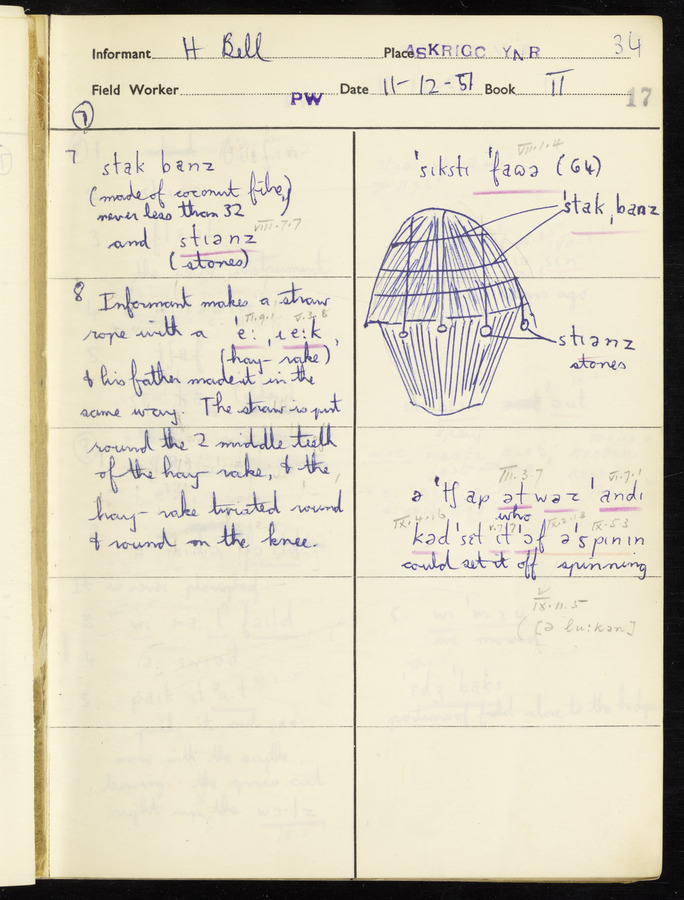 Informant H Bell Place ASKRIGG YNR 34
Field Worker PW Date 11-12-51 Book II 17
7
7 stak banz
(made of coconut fibre,
never less than 32)
VIII.7.7
and stıanz
(stones)
8 Informant makes a straw
rope with a 'e: ˌɹe:k,
(hay-rake)
& his father made it in the
same way. The straw is put
round the 2 middle teeth
of the hay-rake, & the
hay-rake twisted round
& round on the knee.
VII.1.4
'sıkstı 'fawə (64)
'stakˌbanz
stıanz
stones
III.3.7 VI.7.1
ə 'tʃap ət wəz 'andı
who
V.7.7 IX.2.13 IX.5.3
kəd 'sɛt ıt 'ɔf ə'spının
could set it off spinning
V
IX.11.5
([ə lu:kən]